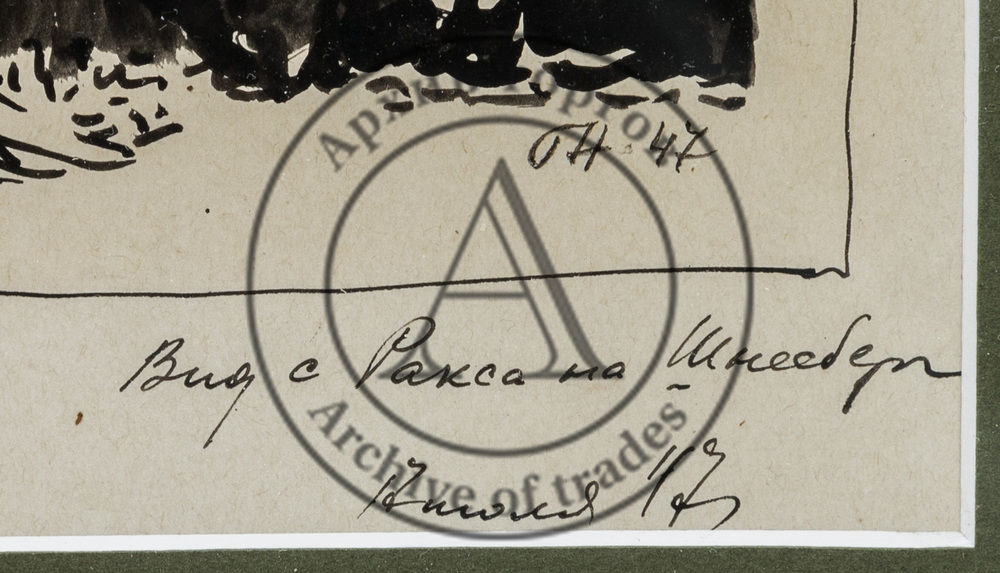 ГН. 47
Вид с Ракса на Шнееберг
17 июля 47
Архив торгов
A
Archive of trades